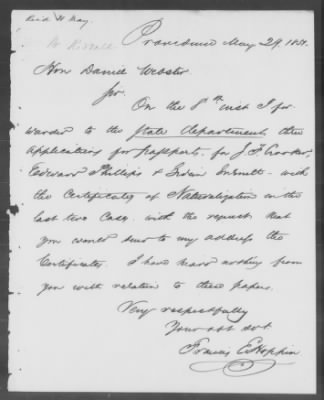 Recd 31 May.
Providence May 29, 1851.
Hon Daniel Webster
Sir.
On the 8th inst I for-
warded to the State department, three
applications for passports, for J. F. Crooker,
Edward Phillips &
with
the Certificates of Naturalization in the
last two Cases. with the request that
you would send to my address the
Certificates. I have heard nothing from
you with relation to these papers.
Very respectfully
Your obt svt
Francis E. Hoppin